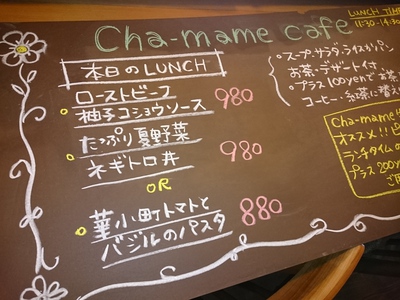 Cha-mame cafe
LUNCH TIME
11:30-14:30
本日のLUNCH
ローストビーフ
柚子コショウソース 980
たっぷり夏野菜
ネギトロ丼 980
OR
華小町トマトと
バジルのパスタ 880
・スープ・サラダ・ライスorパン
お茶・デザート付
・プラス100yenで
コーヒー・紅茶に替え
Cha-mame
オススメ!!
ランチタイムの
プラス200y